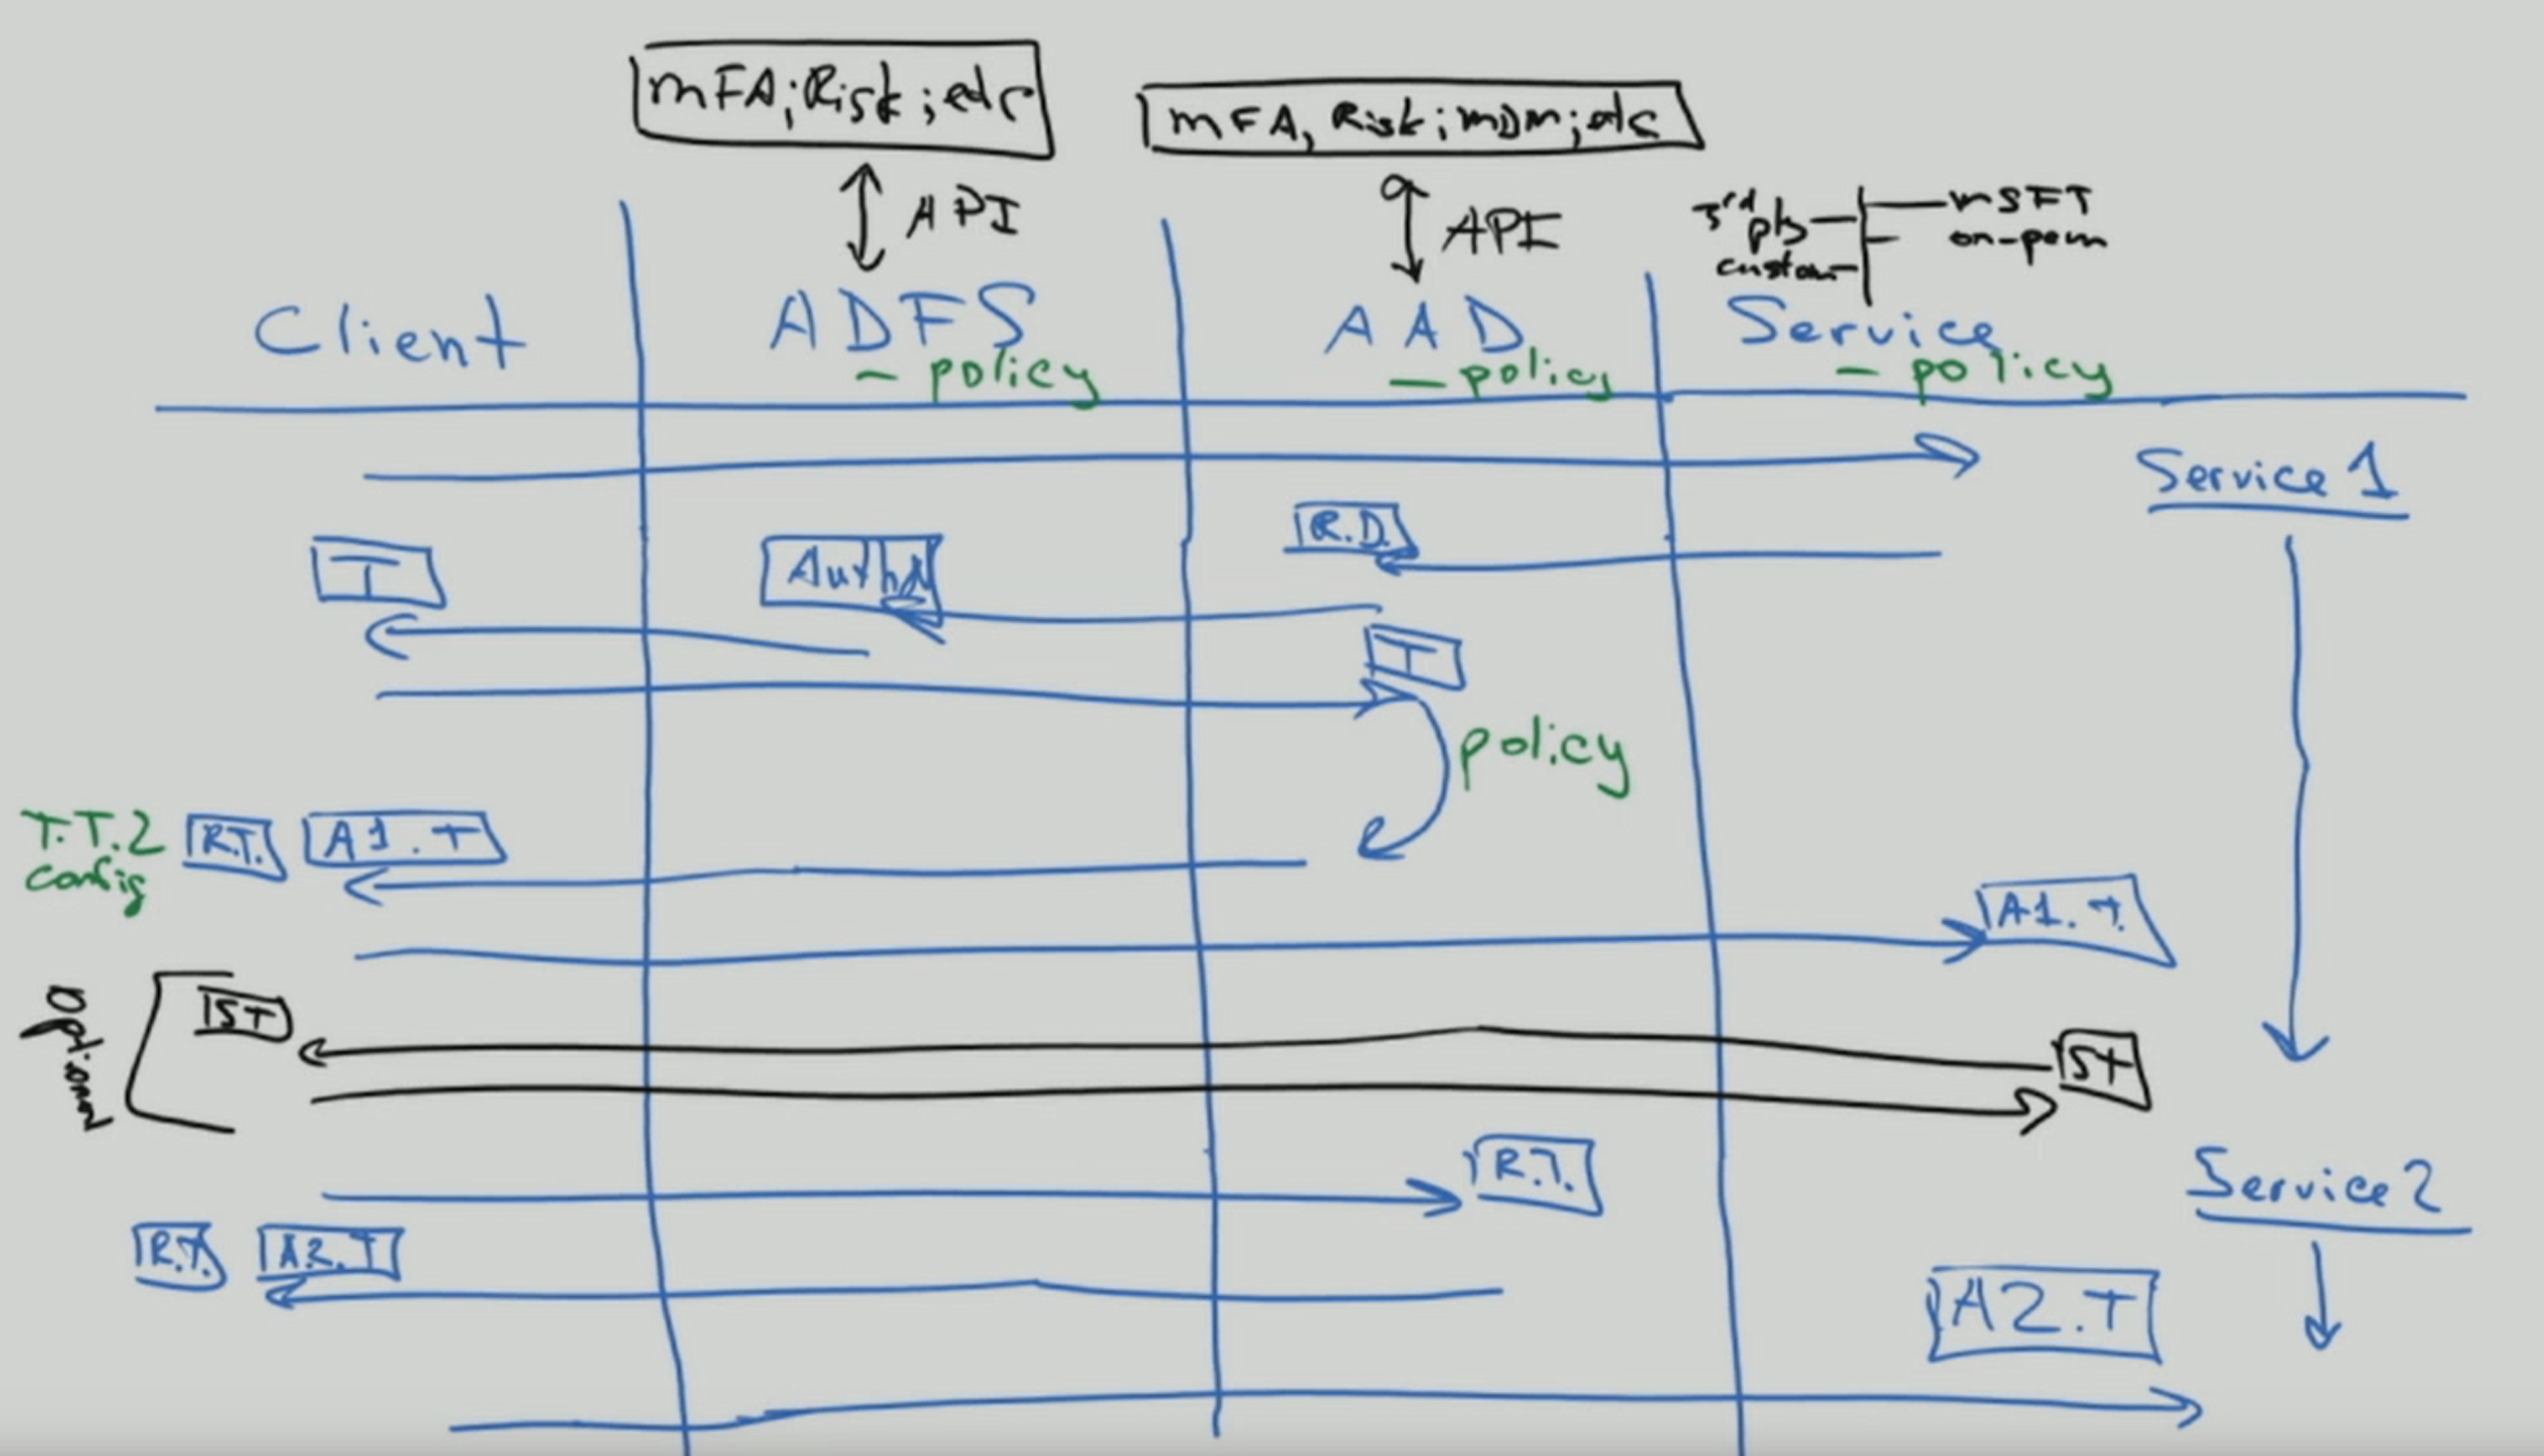 mFA; Risk; etc
mFA, Risk; mDm; etc
API
API
3rd pty
msFT
on-prem
custom
Client
ADFS
AAD
Service
- policy
- policy
- policy
Service 1
R.D.
T
AuthN
T
policy
T.T.2
config
R.T.
A1.T
A1.T.
optional
ST
ST
R.T.
Service 2
R.T.
A2.T
A2.T